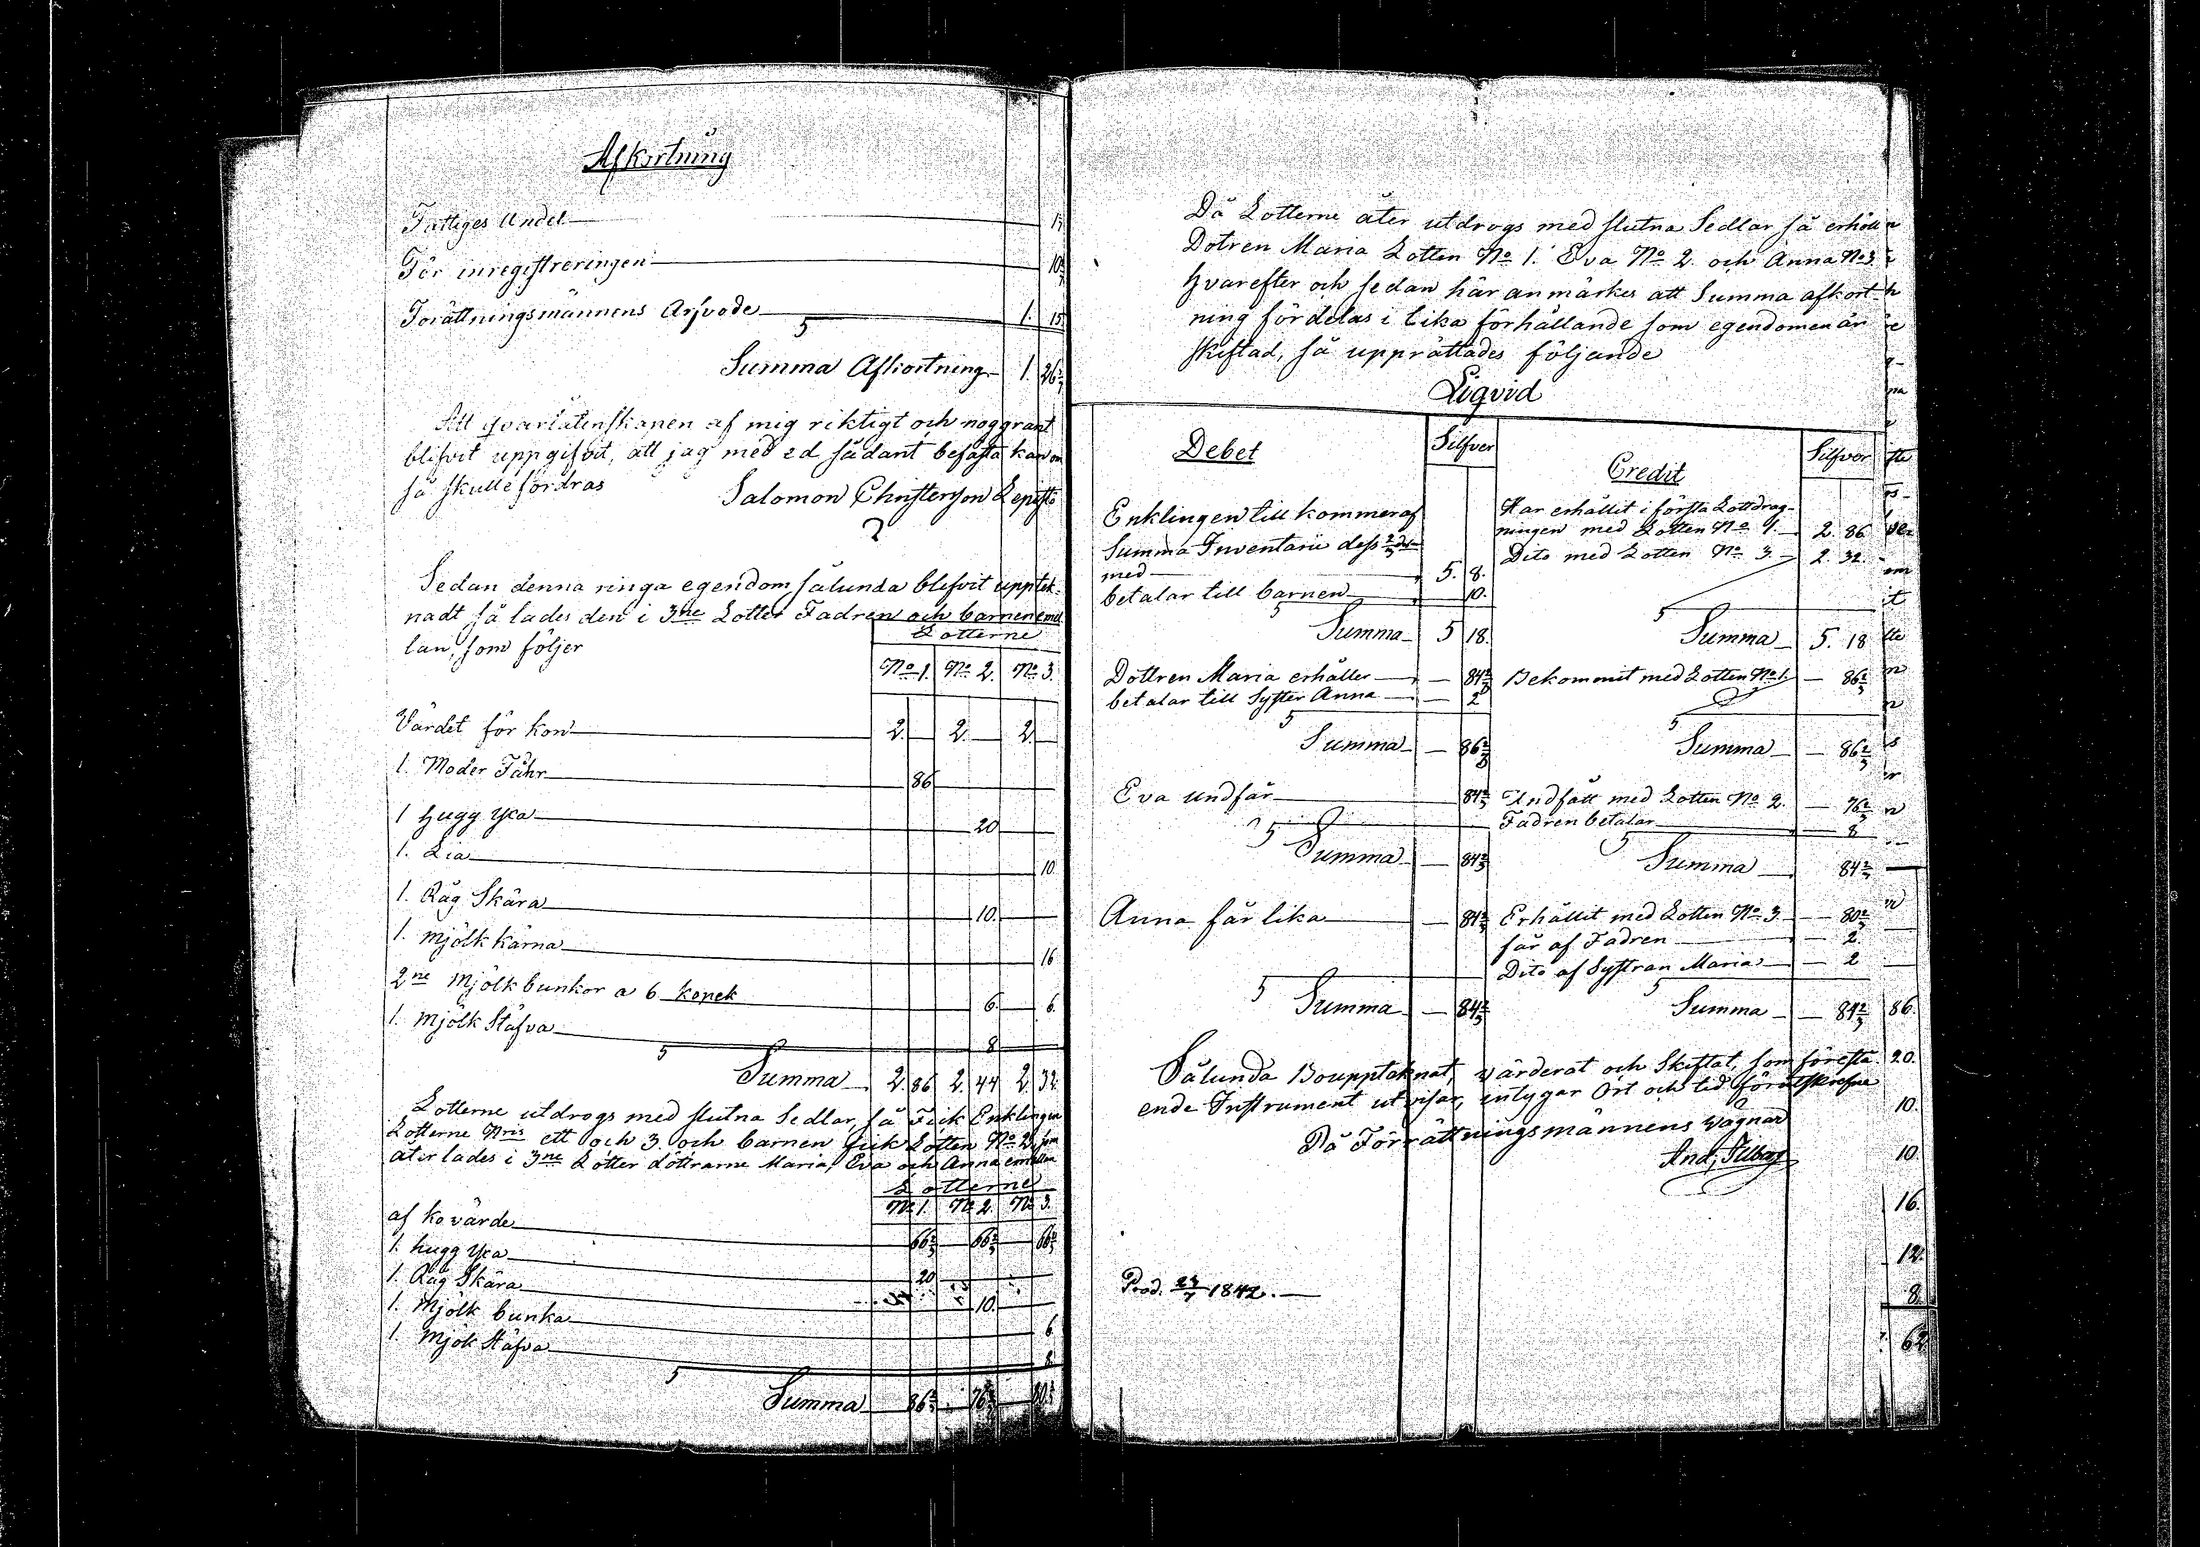 Afkortning
Fattiges Andel
För inregistreringen
Forättningsmännens Arfvode 1. 15
Summa Afkortning 1. 26 2/7
Att qvarlåtenskapen af mig riktigt och noggrant
blifvit uppgifvit, att jag med ed sådant befästa kan om
så skulle fördras Salomon Christerson Lepistö
Sedan denna ringa egendom sålunda blifvit upptek-
nadt så lades den i 3ne Lotter Fadren och barnen emel
lan, som följer
Lotterne
No 1. No 2. No 3.
Värdet för kon 2. 2. 2.
1. Moder Fåhr 86
1 hugg yxa 20
1. Lia 10
1. Råg Skära 10.
1. Mjölk kärna 16
2ne Mjölk bunkor a 6 kopek 6. 6.
1. Mjölk Stäfva 8
Summa 2. 86 2. 44 2. 32.
Lotterne utdrogs med slutna Sedlar, så Fick Enklingen
Lotterne Nris ett och 3 och barnen fick Lotten No 2, som
åter lades i 3ne Lotter döttrarne Maria, Eva och Anna emellan
Lotterne
No 1. No 2. No 3.
af ko värde 66 2/3 66 2/3 66 2/3
1. hugg yxa 20
1. Råg Skära 10.
1. Mjölk bunka 6
1. Mjök Stäfva 8
Summa 86 2/3 76 2/3 80 2/3
Då Lotterne åter utdrogs med slutna Sedlar så erhöll
Dotren Maria Lotten No 1. Eva No 2. och Anna No 3
hvarefter och sedan här anmärkes att Summa afkort-
ning fördelas i lika förhållande som egendomen är
skiftad, så upprättades följande
Liqvid
Debet Silfver Credit Silfver
Enklingen till kommer af
Summa Inventarii dess 2/3 del
med 5. 8.
betalar till barnen 10.
Summa 5 18.
Har erhållit i första Lottdrag-
ningen med Lotten No 1. 2. 86
Dito med Lotten No 3. 2. 32.
Summa 5. 18
Dottren Maria erhåller 84 2/3
betalar till Syster Anna 2
Summa 86 2/3
Bekommit med Lotten No 1. 86 2/3
Summa 86 2/3
Eva undfår 84 2/3
Summa 84 2/3
Undfått med Lotten No 2. 76 2/3
Fadren betalar 8
Summa 84 2/3
Anna får lika 84 2/3
Summa 84 2/3
Erhållit med Lotten No 3. 80 2/3
får af Fadren 2.
Dito af Systran Maria 2
Summa 84 2/3
Sålunda Bouppteknat, värderat och Skiftat, som förestå
ende Instrument utvisar, intygar Ort och tid förutskrefne
På Förrättningsmännens vägnar
Prod. 23/7 1842.
86.
20.
10.
10.
16.
12.
8.
62